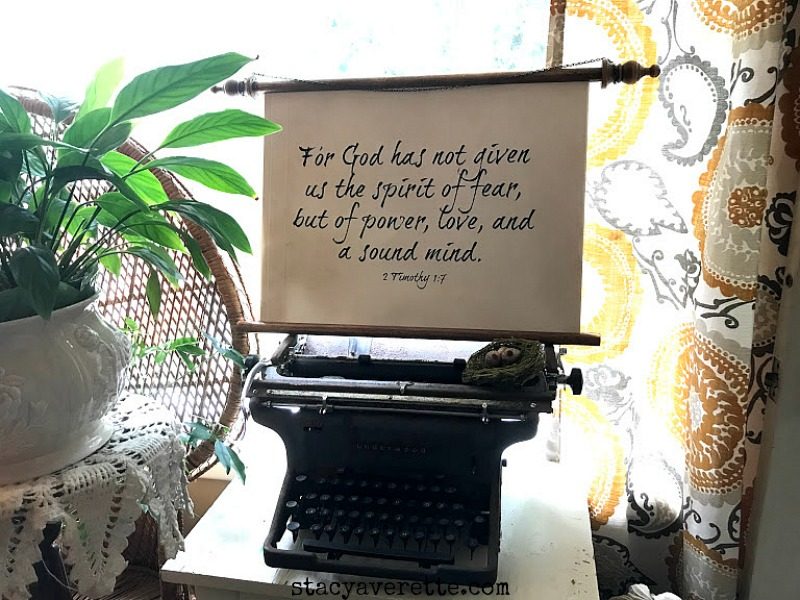 For God has not given
us the spirit of fear,
but of power, love, and
a sound mind.
2 Timothy 1:7
Underwood
stacyaverette.com